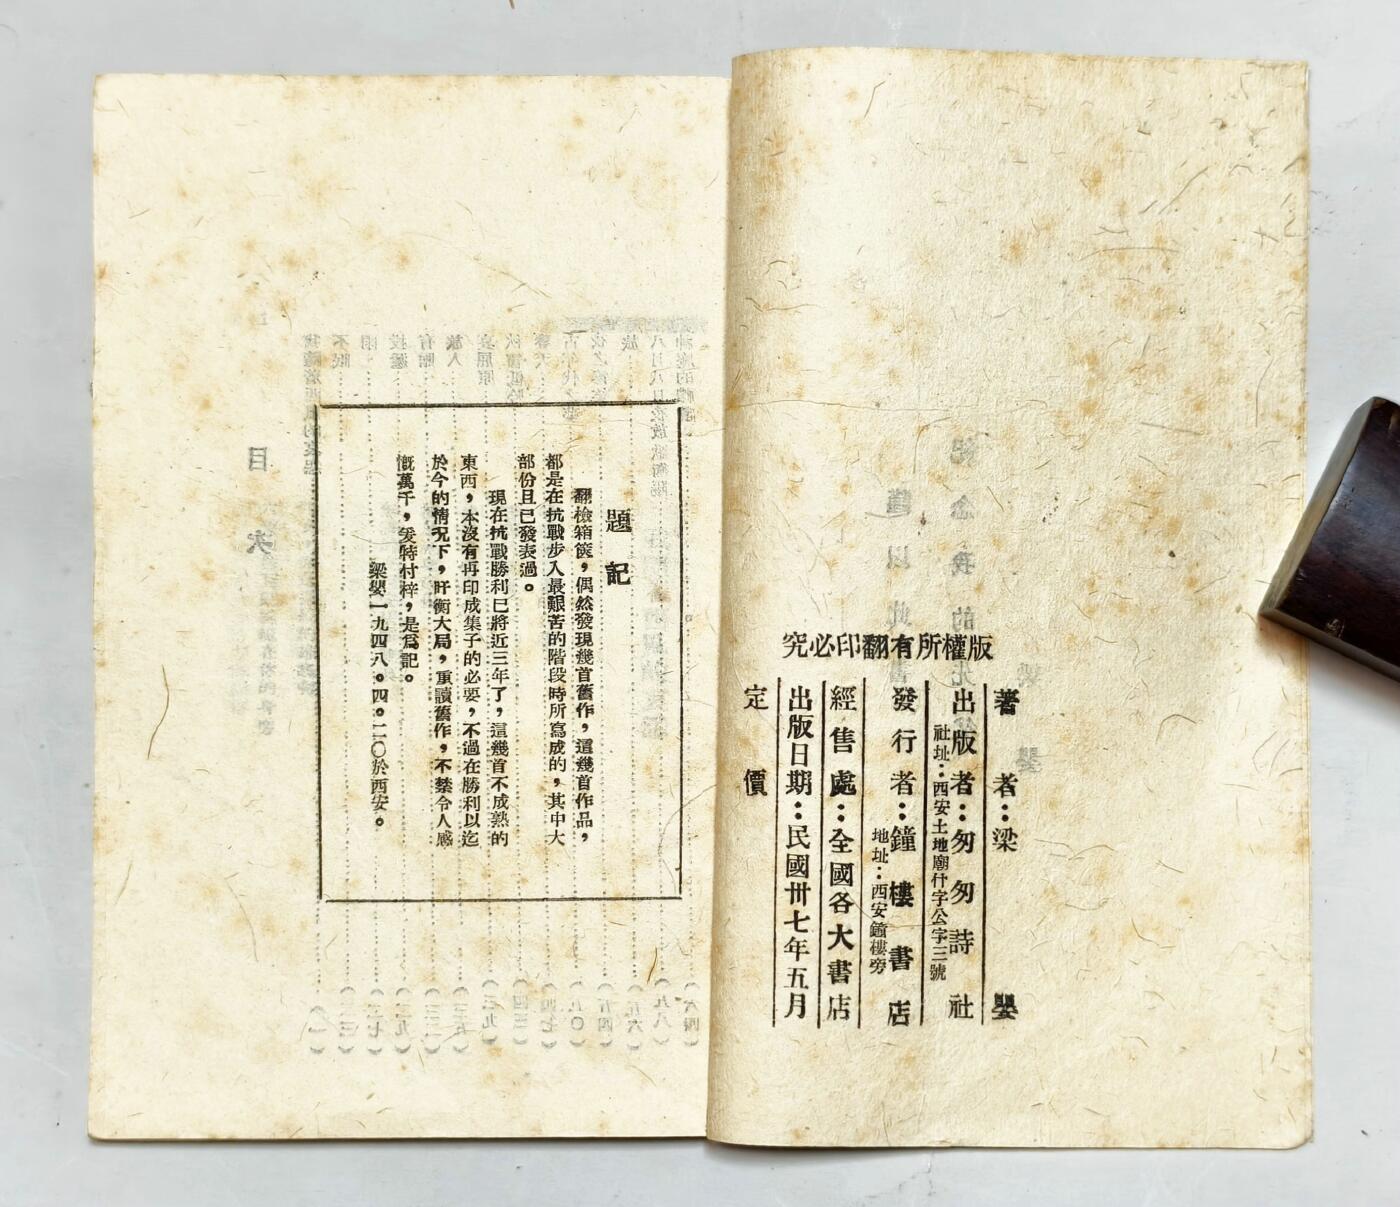 版權所有翻印必究
著者：梁嬰
出版者：匆匆詩社
社址：西安土地廟什字公字三號
發行者：鐘樓書店
地址：西安鐘樓旁
經售處：全國各大書店
出版日期：民國卅七年五月
定價
題記
翻檢箱篋，偶然發現幾首舊作，這幾首作品，
都是在抗戰步入最艱苦的階段時所寫成的，其中大
部份且已發表過。
現在抗戰勝利已將近三年了，這幾首不成熟的
東西，本沒有再印成集子的必要，不過在勝利以迄
於今的情況下，盱衡大局，重讀舊作，不禁令人感
慨萬千，爰特付梓，是爲記。
梁嬰一九四八。四。二〇於西安。